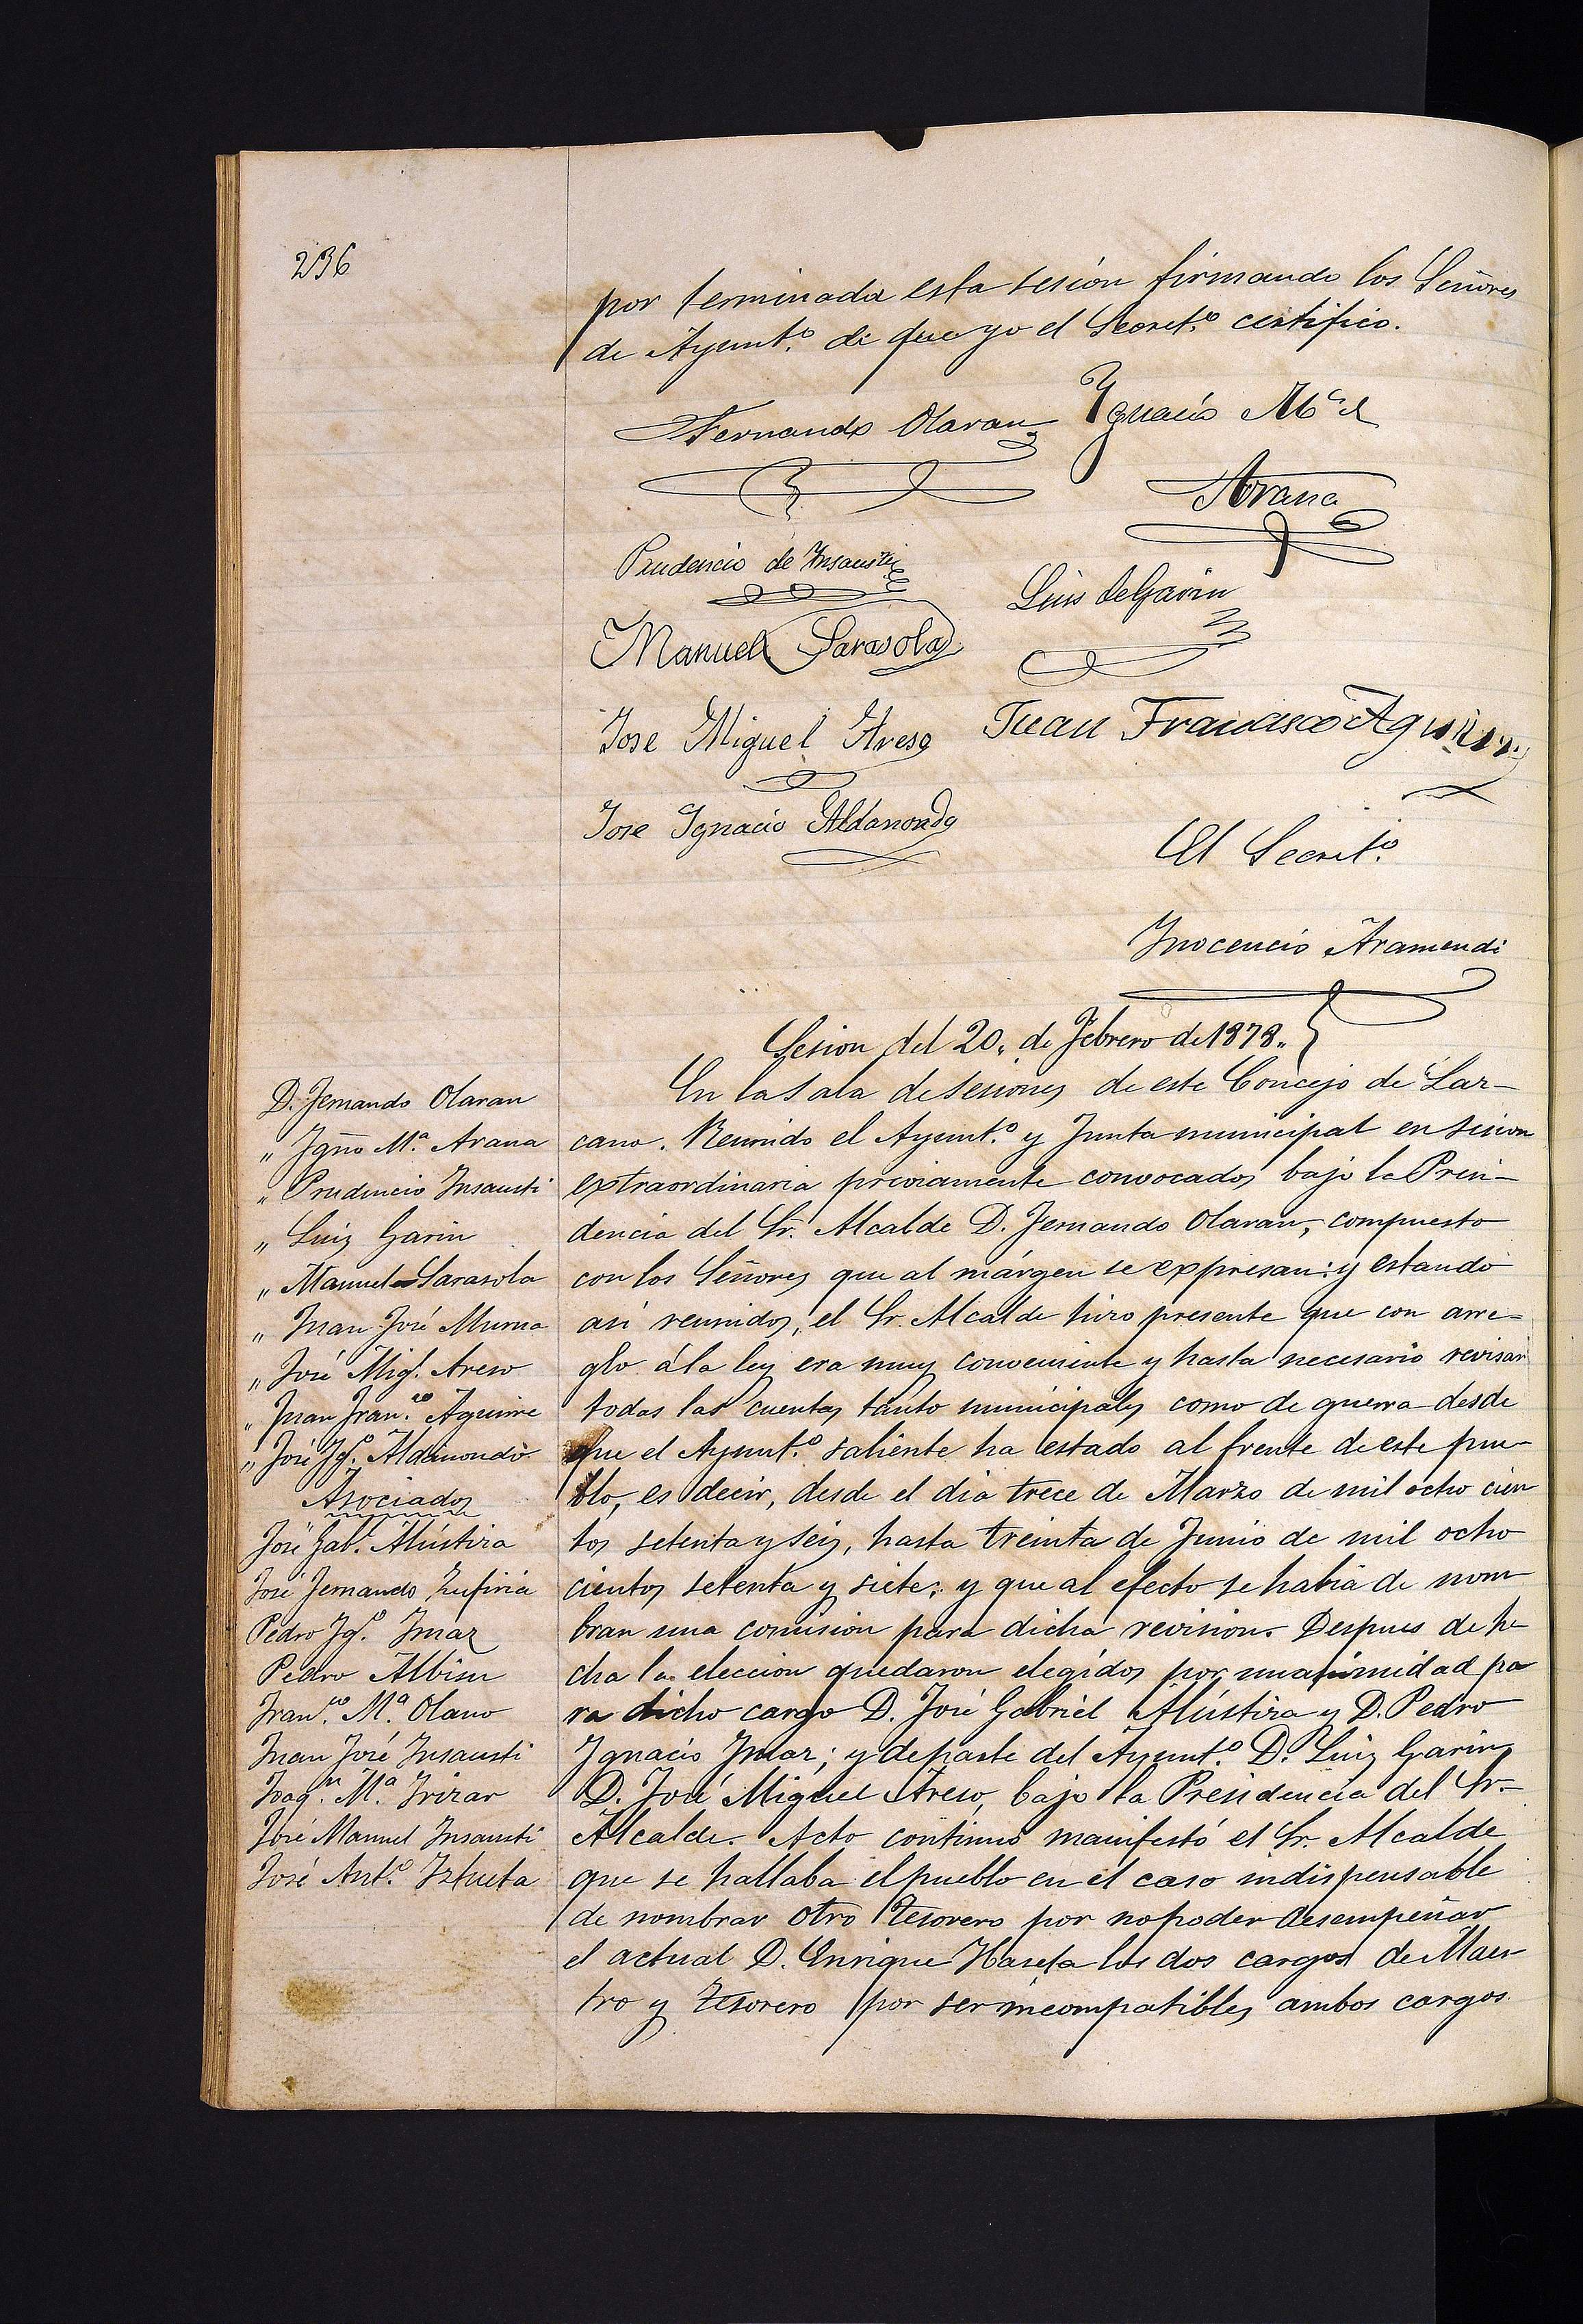 236
por terminada esta sesión firmando los Señores
de Ayunt.º de que yo el Secret.º certifico.
Fernando Olaran Ygnacio Mª
Arana
Prudencio de Insausti
Luis de Garin
Manuel Sarasola
Jose Miguel Areso Juan Francisco Aguirre
Jose Ygnacio Aldanondo
El Secret.º
Ynocencio Aramendi
Sesion del 20, de Febrero de 1878.,
D. Fernando Olaran
„ Ygnº M.ª Arana
„ Prudencio Insausti
„ Luiz Garin
„ Manuel Sarasola
„ Juan José Murua
„ José Mig.l Areso
„ Juan Fran.co Aguirre
„ José Yg.º Aldanondo
Asociados
José Gab.l Alústiza
José Fernando Zufiria
Pedro Yg.º Imaz
Pedro Albisu
Fran.co M.ª Olano
Juan José Insausti
Joaq.n M.ª Irizar
José Manuel Insausti
José Ant.º Iztueta
En la Sala de sesiones de este Concejo de Laz-
cano. Reunido el Ayunt.º y Junta municipal en sesion
extraordinaria previamente convocados bajo la Presi-
dencia del Sr. Alcalde D. Fernando Olaran, compuesto
con los Señores que al márgen se expresan: y estando
asi reunidos, el Sr. Alcalde hizo presente que con arre-
glo á la ley era muy conveniente y hasta necesario revisar
todas las cuentas tanto municipales como de guerra desde
que el Ayunt.º saliente ha estado al frente de este pue-
blo, es decir, desde el dia trece de Marzo de mil ocho cien
tos setenta y seis, hasta treinta de Junio de mil ocho
cientos setenta y siete; y que al efecto se habia de nom
bran una comision para dicha revision. Despues de he
cha la eleccion quedaron elegidos por unanimidad pa
ra dicho cargo D. José Gabriel Alústiza y D. Pedro
Ygnacio Imaz; y de parte del Ayunt.º D. Luiz Garin y
D. José Miguel Areso, bajo la Presidencia del Sr.
Alcalde. Acto continuo manifestó el Sr. Alcalde
que se hallaba el pueblo en el caso indispensable
de nombrar otro tesorero por no poder desempeñar
el actual D. Enrique los dos cargos de Maes
tro y tesorero por ser incompatibles ambos cargos